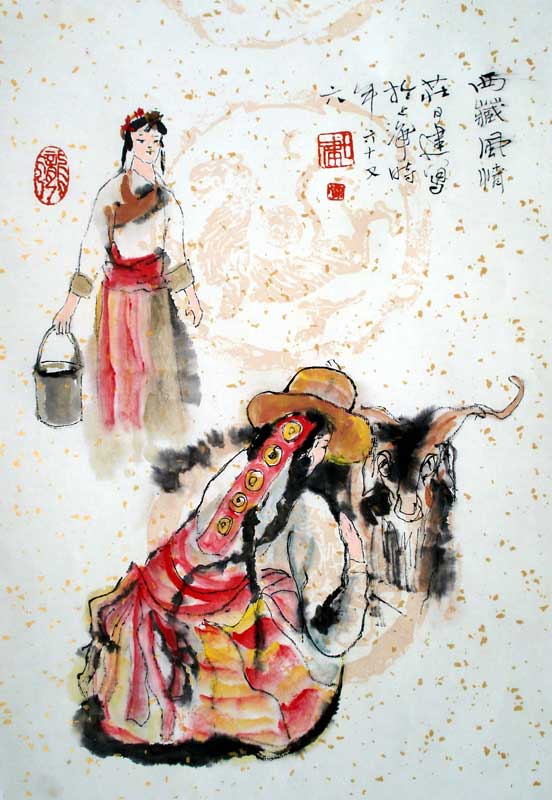 西藏風情
莊日建寫
於上海時
年六十又
六